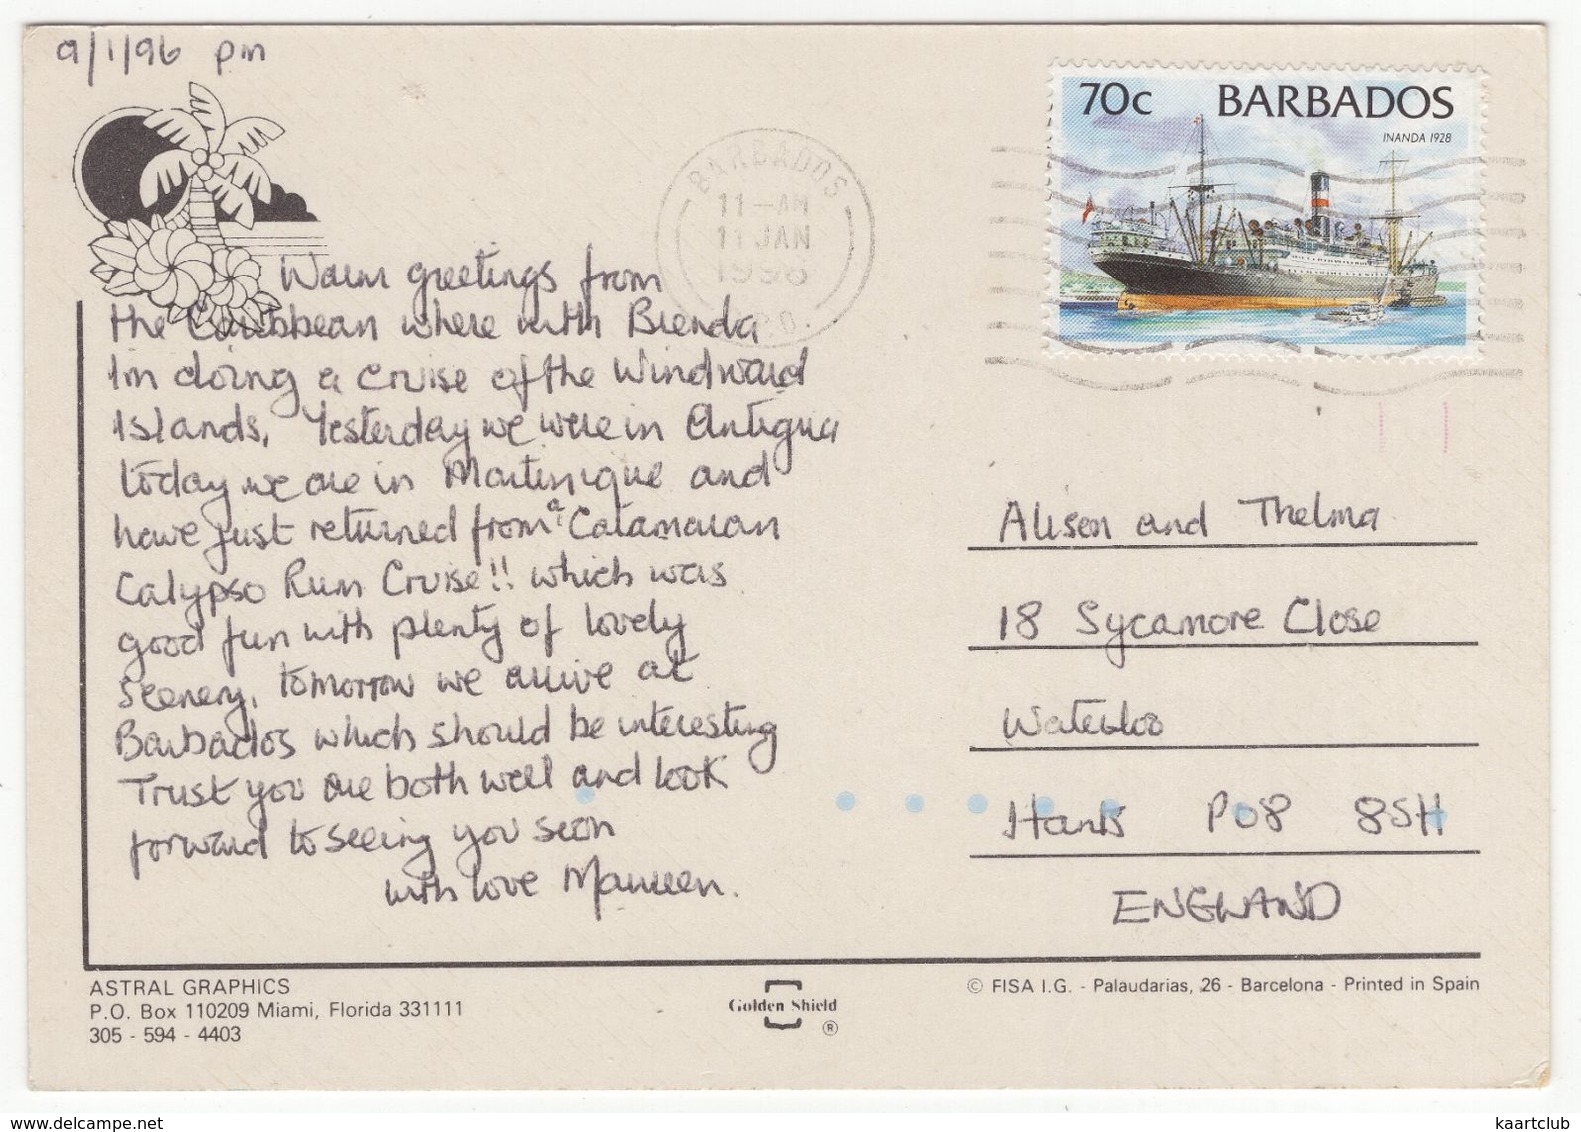 9/1/96 pm
70c BARBADOS
INANDA 1928
BARBADOS
11-AM
11 JAN
1996
P.O.
Warm greetings from
the Caribbean where with Brenda
I'm doing a cruise of the Windward
Islands, Yesterday we were in Antigua
today we are in Martinique and
have just returned from a Catamaran
Calypso Rum Cruise!! which was
good fun with plenty of lovely
scenery, tomorrow we arrive at
Barbados which should be interesting
Trust you are both well and look
forward to seeing you soon
with love Maureen.
Alison and Thelma
18 Sycamore Close
Waterloo
Hants PO8 8SH
ENGLAND
ASTRAL GRAPHICS
P.O. Box 110209 Miami, Florida 331111
305 - 594 - 4403
Golden Shield
®
© FISA I.G. - Palaudarias, 26 - Barcelona - Printed in Spain
www.delcampe.net
kaartclub